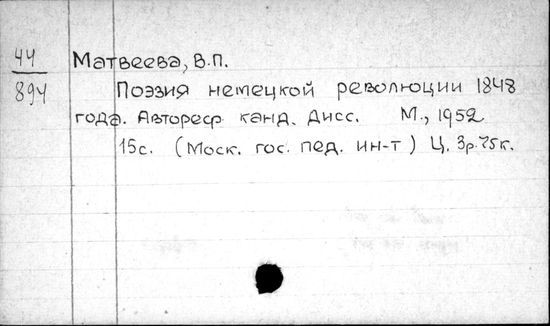 44
894
Матвеева, В.П.
Поэзия немецкой революции 1848
года. Автореф канд. Дисс. М., 1952
15с. (Моск. гос. пед. ин-т) Ц. 3р.75к.